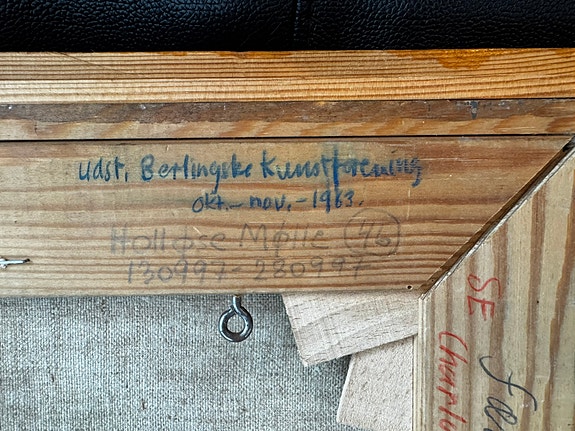 udst. Berlingske Kunstforening
okt. – nov. – 1963.
Holløse Mølle 46
130997 - 280997
SE